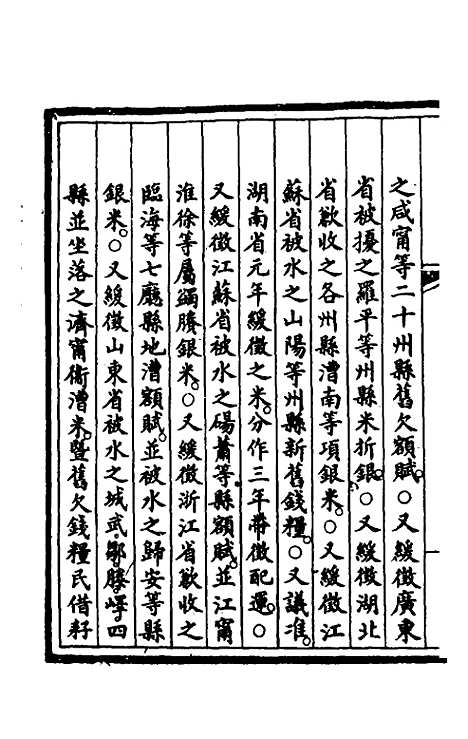 之咸甯等二十州縣舊欠額賦。○又緩徵廣東
省被擾之羅平等州縣米折銀。○又緩徵湖北
省歉收之各州縣漕南等項銀米。○又緩徵江
蘇省被水之山陽等州縣新舊錢糧。○又議准。
湖南省元年緩徵之米。分作三年帶徵配運。○
又緩徵江蘇省被水之碭蕭等縣額賦。並江甯
淮徐等屬蠲賸銀米。○又緩徵浙江省歉收之
臨海等七廳縣地漕額賦。並被水之歸安等縣
銀米。○又緩徵山東省被水之城武鄒滕嶧四
縣並坐落之濟甯衛漕米。暨舊欠錢糧民借籽